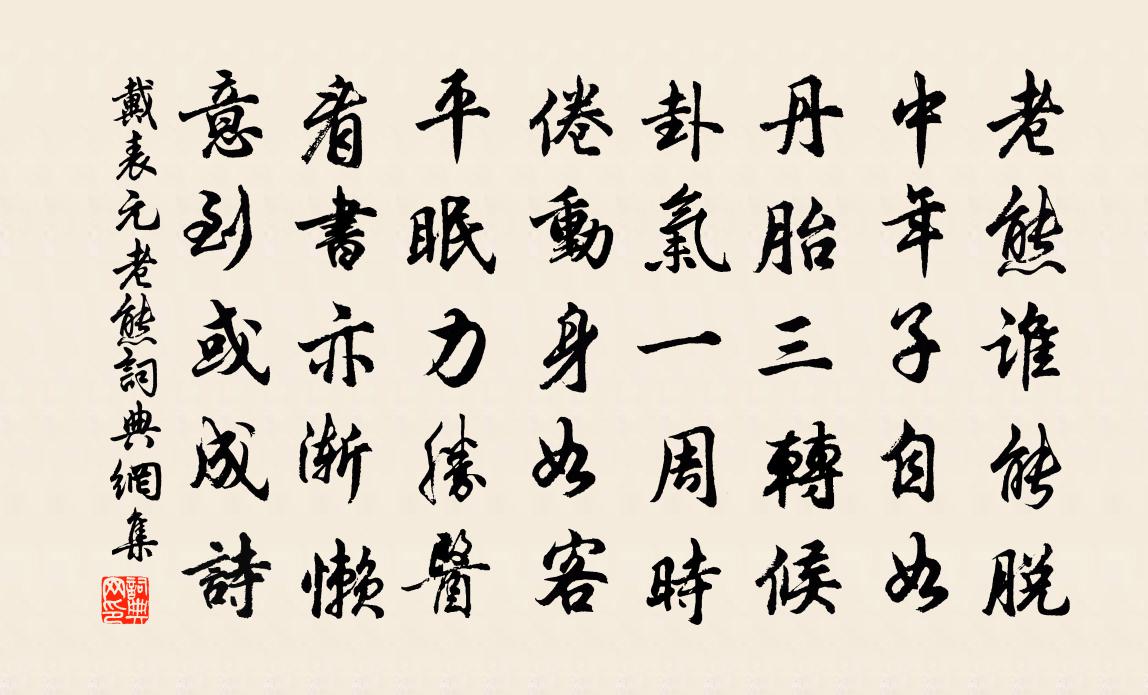 老熊誰能脫
中年子自如
丹胎三轉候
卦氣一周時
倦動身如客
平眠力勝醫
看書亦漸懶
意到或成詩
戴表元老熊詞典網集
詞典網印